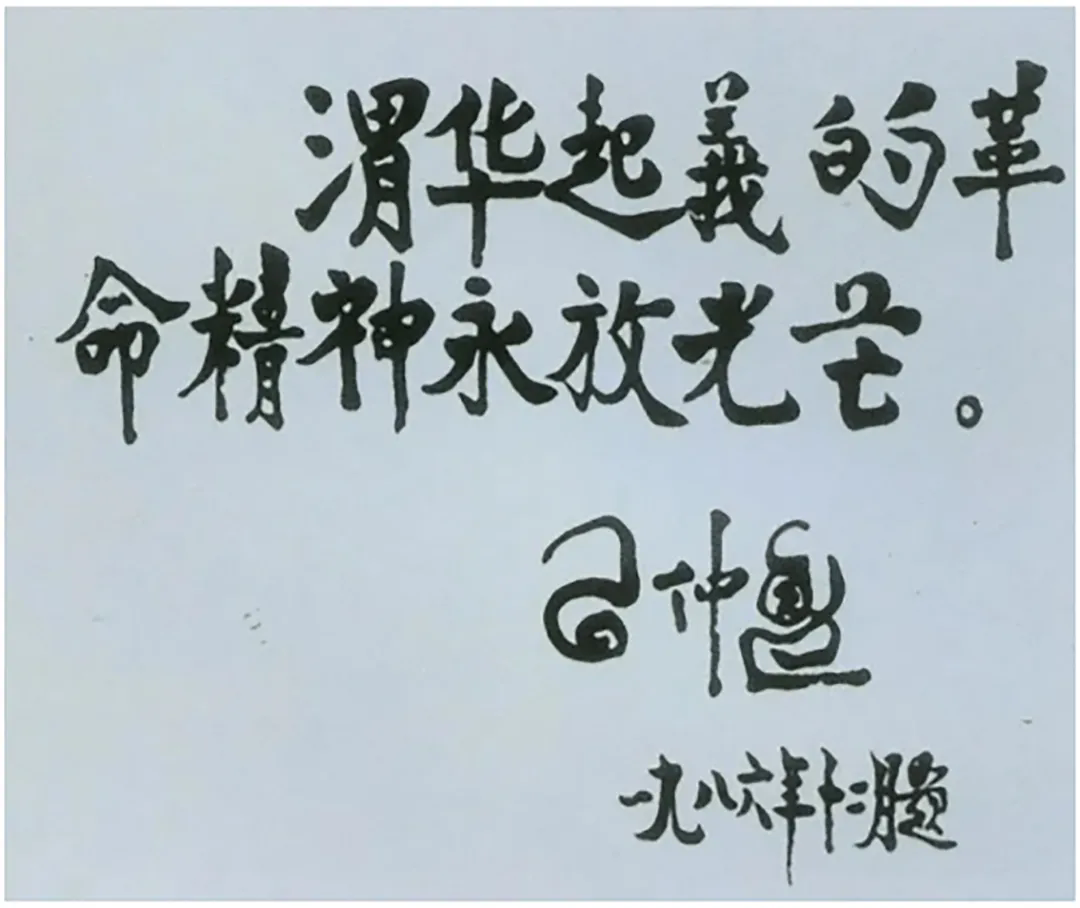 渭华起義的革
命精神永放光芒。
习仲勛
一九八六年十二月題